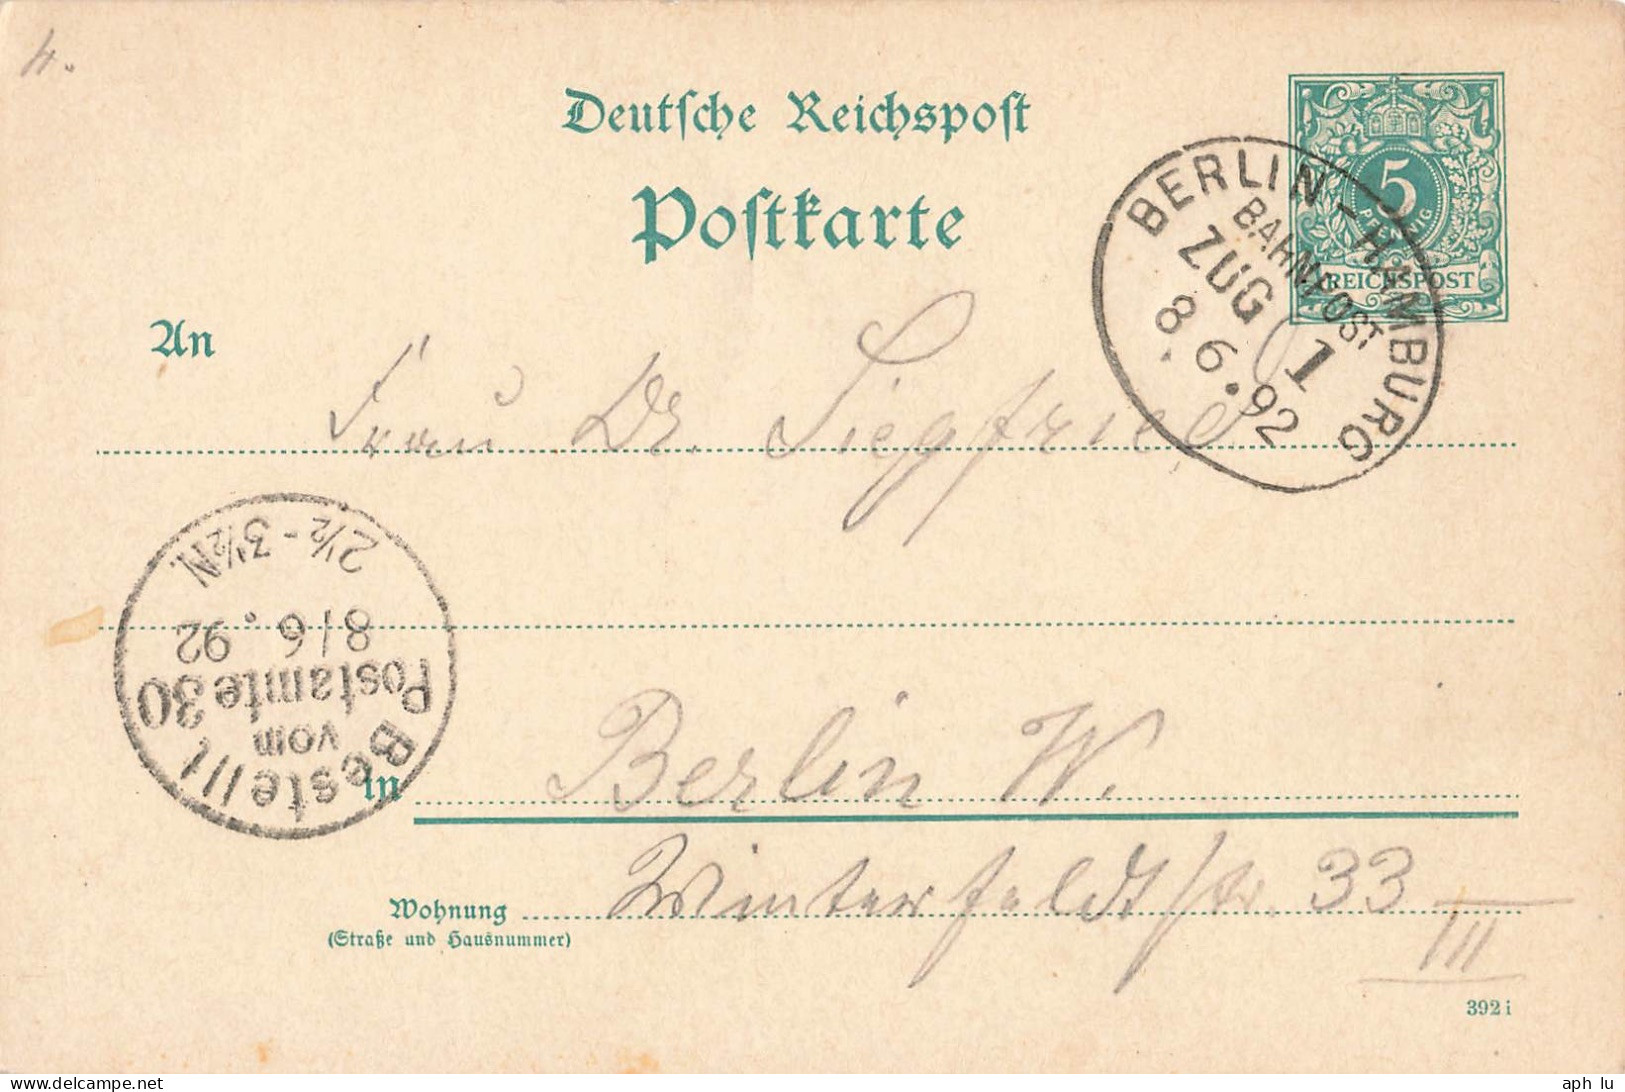 4.
Deutsche Reichspost
Postkarte
5
PFENNIG
REICHSPOST
BERLIN-HAMBURG
BAHNPOST
ZUG 1
8.6.92
An
Frau Dr. Siegfried
2½-3½N.
8/6.92
Postamte 30
vom
Bestellt
in Berlin W.
Wohnung Winterfeldtstr. 33 III
(Straße und Hausnummer)
392 i
aph lu